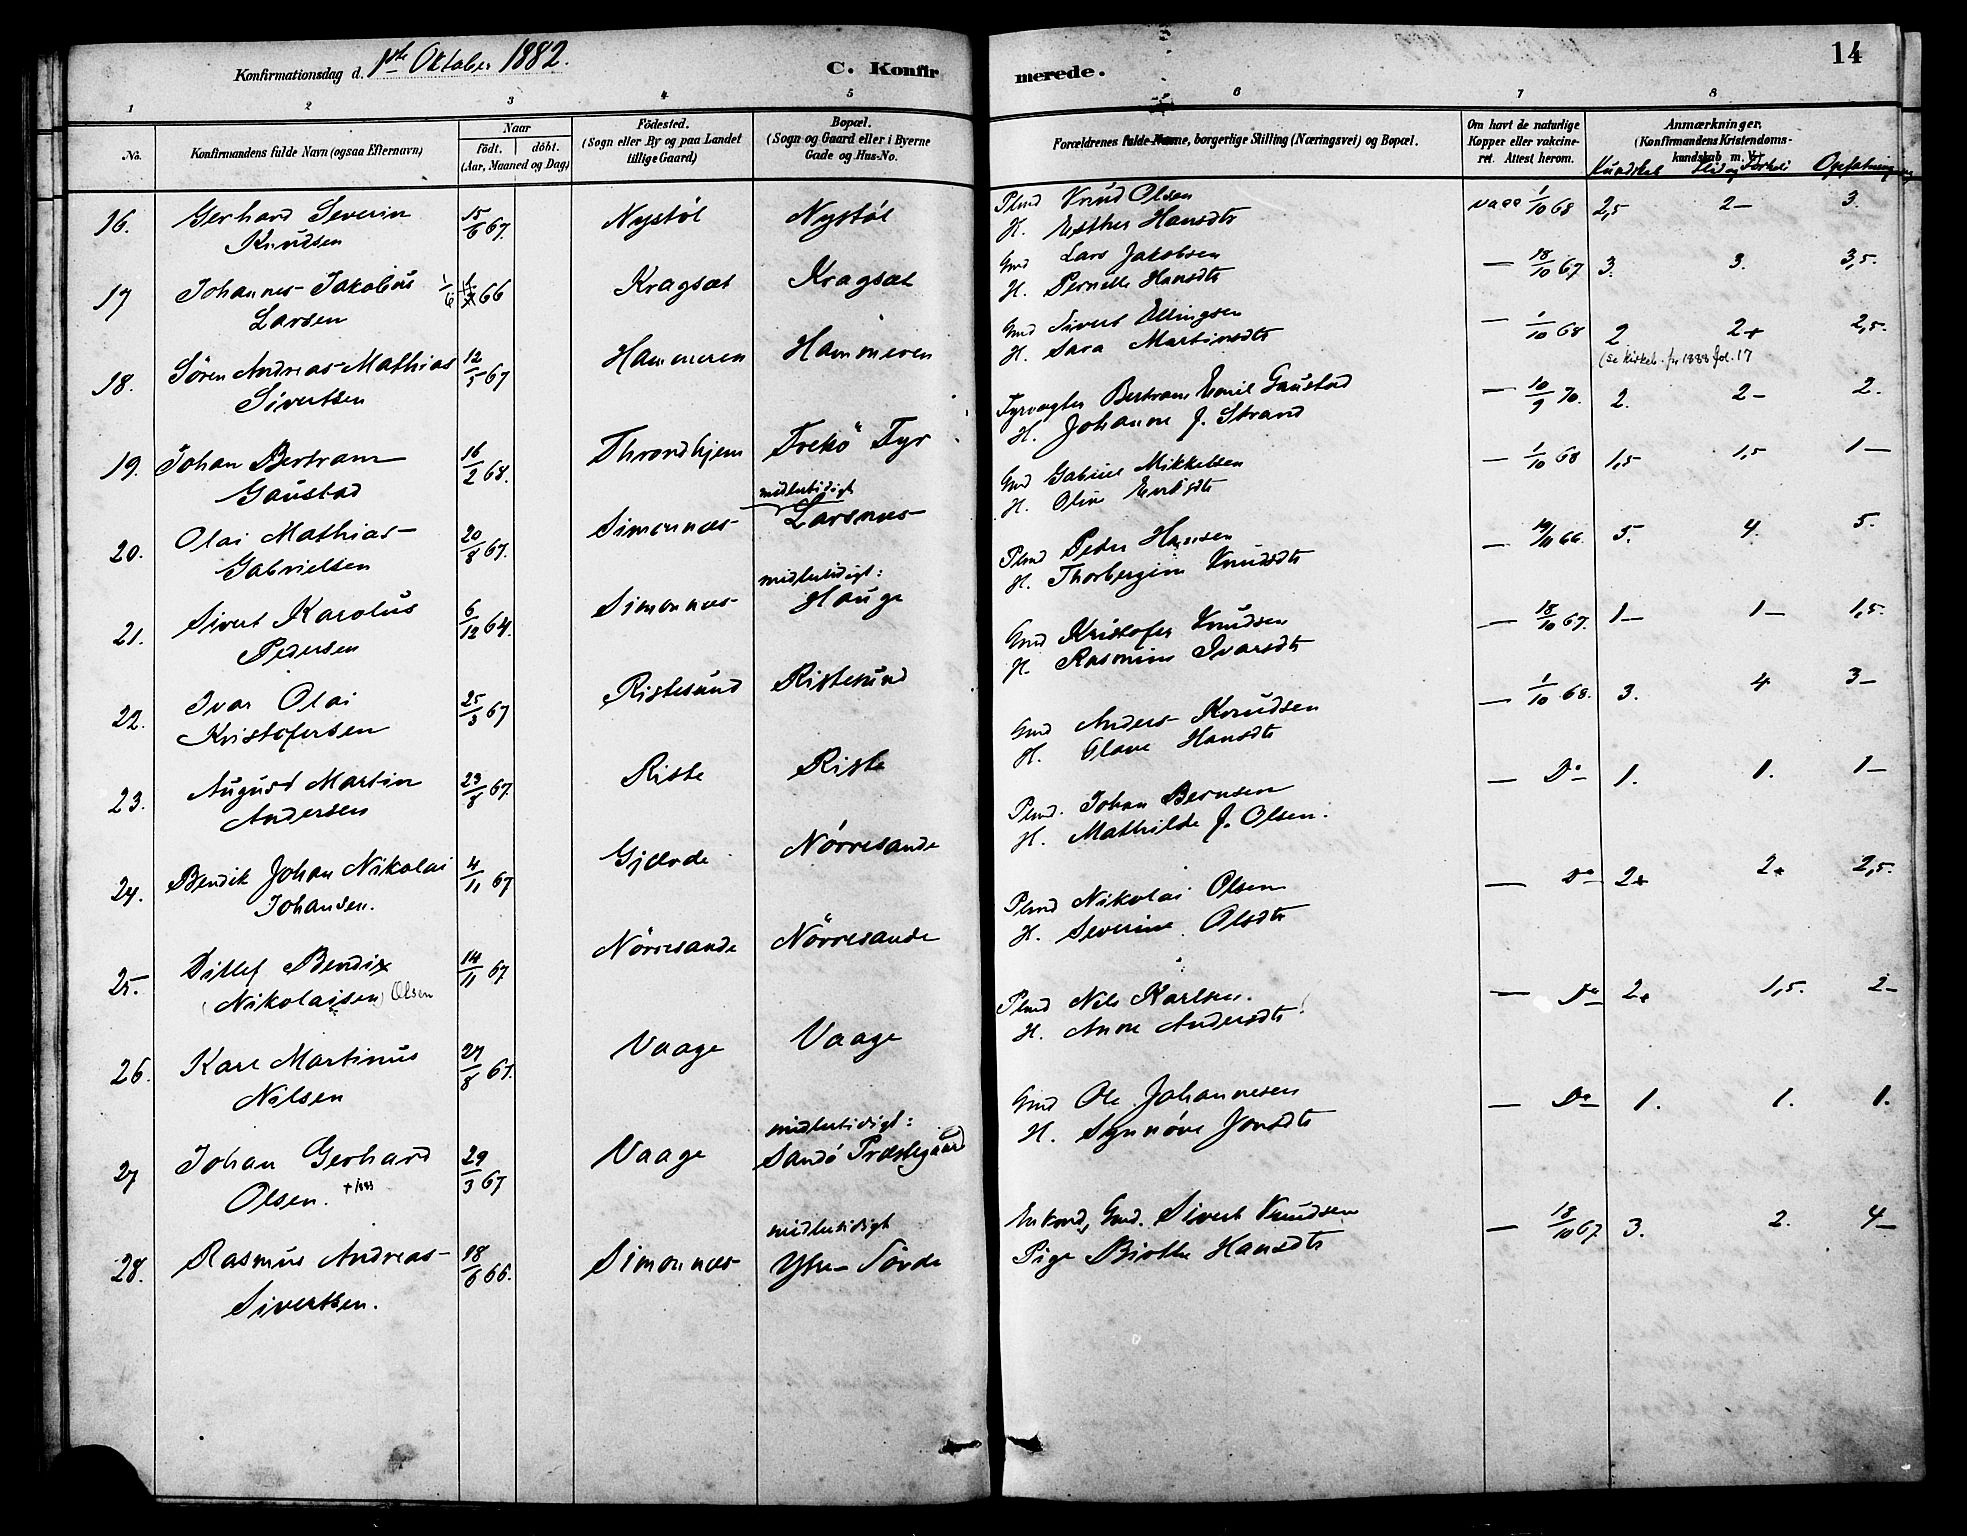 Konfirmationsdag d. 1ste Oktober 1882.
C. Konfirmerede.
14
1 2 3 4 5 6 7 8
No.
Konfirmandens fulde Navn (ogsaa Efternavn)
Naar
födt. döbt.
(Aar, Maaned og Dag)
Födested.
(Sogn eller By og paa Landet tillige Gaard)
Bopæl.
(Sogn og Gaard eller i Byerne Gade og Hus-No.
Forældrenes fulde Navne, borgerlige Stilling (Næringsvei) og Bopæl.
Om havt de naturlige Kopper eller vakcineret. Attest herom.
Anmærkninger.
(Konfirmandens Kristendomskundskab m. V.)
Kundskab Flid og Forhold Opfatning
16. Gerhard Severin Knudsen 15/6 67. Nystøl Nystøl Plmd Knud Olsen H. Esther Hansdtr vacc 1/10 68 2,5 2- 3.
17 Johannes Jakobus Larsen 1/6 66 Kragsæt Kragsæt Gmd Lars Jakobsen H. Pernille Hansdtr — 18/10 67 3. 3. 3,5.
18. Sören Andreas Mathias Sivertsen 12/5 67 Hammeren Hammeren Gmd Sivert Ellingsen H. Sara Martinsdtr — 1/10 68 2 2+ 2,5.
(se kirkeb. for 1883 fol. 17
19. Johan Bertram Gaustad 16/2 68. Throndhjem Frekö Fyr Fyrvogter Bertram Emil Gaustad H. Johanne J. Strand — 10/9 70. 2. 2- 2.
20. Olai Mathias Gabrielsen 20/8 67. Simonnæs midlertidigt Larsnæs Gmd Gabriel Mikkelsen H. Oline Eriksdtr — 1/10 68 1,5 1,5 1-
21. Sivert Karolus Pedersen 6/12 64. Simonnæs midlertidigt: Hauge Plmd Peder Hansen H. Thorbergine Knudsdtr — 66. 5. 4. 5.
22. Ivar Olai Kristofersen 25/3 67 Ristesund Ristesund Gmd Kristofer Knudsen H. Rasmine Ivarsdtr — 18/10 67. 1- 1- 1,5.
23. August Martin Andersen 23/8 67. Riste Riste Gmd Anders Knudsen H. Olave Hansdtr — 1/10 68. 3. 4 3-
24. Bendik Johan Nikolai Johansen. 4/11 67 Gjærde Nörresande Plmd. Johan Bernsen H. Mathilde J. Olsen. — Do 1. 1. 1-
25. Ditlef Bendix (Nikolaisen) Olsen 14/11 67 Nörresande Nörresande Plmd Nikolai Olsen H. Severine Olsdtr — Do 2+ 2+ 2,5.
26. Karl Martinus Nilsen 27/8 67. Vaage Vaage Plmd Nils Karlsen. H. Anne Andersdtr — Do 2+ 1,5. 2-
27 Johan Gerhard Olsen. +1883 29/3 67 Vaage midlertidigt: Sandö Præstegaard Gmd Ole Johannesen H. Synnöve Jonsdtr — Do 1. 1. 1.
28. Rasmus Andreas Sivertsen. 18/6 66. Simonnæs midlertidigt Ytre Sörde Enkemd, Gmd. Sivert Knudsen Pige Birthe Hansdtr — 18/10 67. 3. 2. 4-